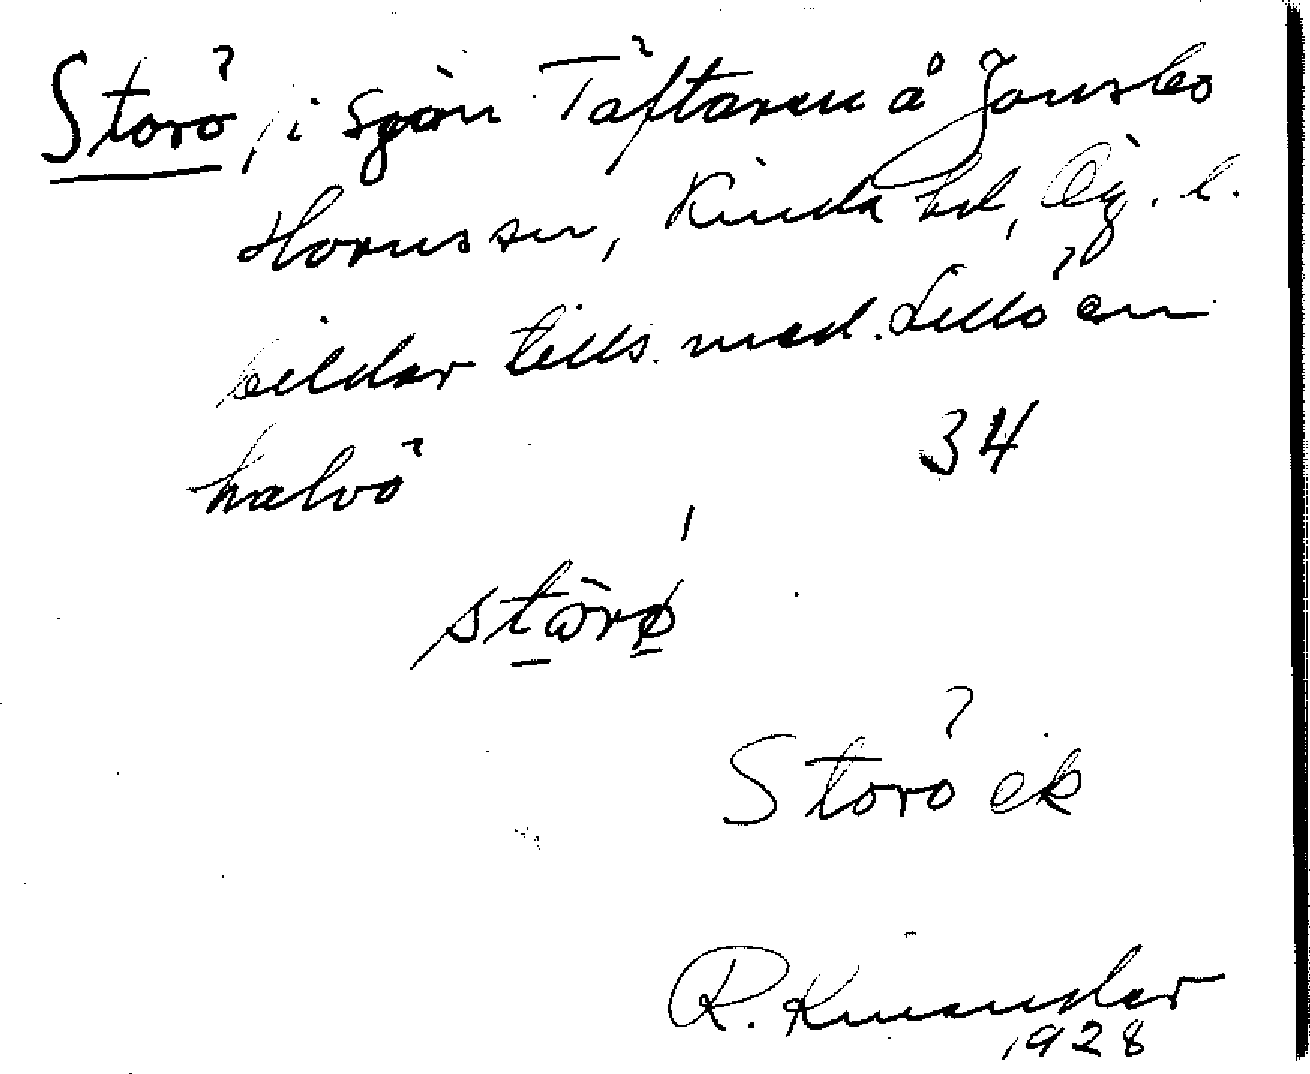 Storö, i sjön Täftaren å Jonsbo
Horns sn, Kinda hd, Ög. l.
bildar tills. med. Lillö en
halvö 34
stωrø
Storö ek
R. Kinander
1928